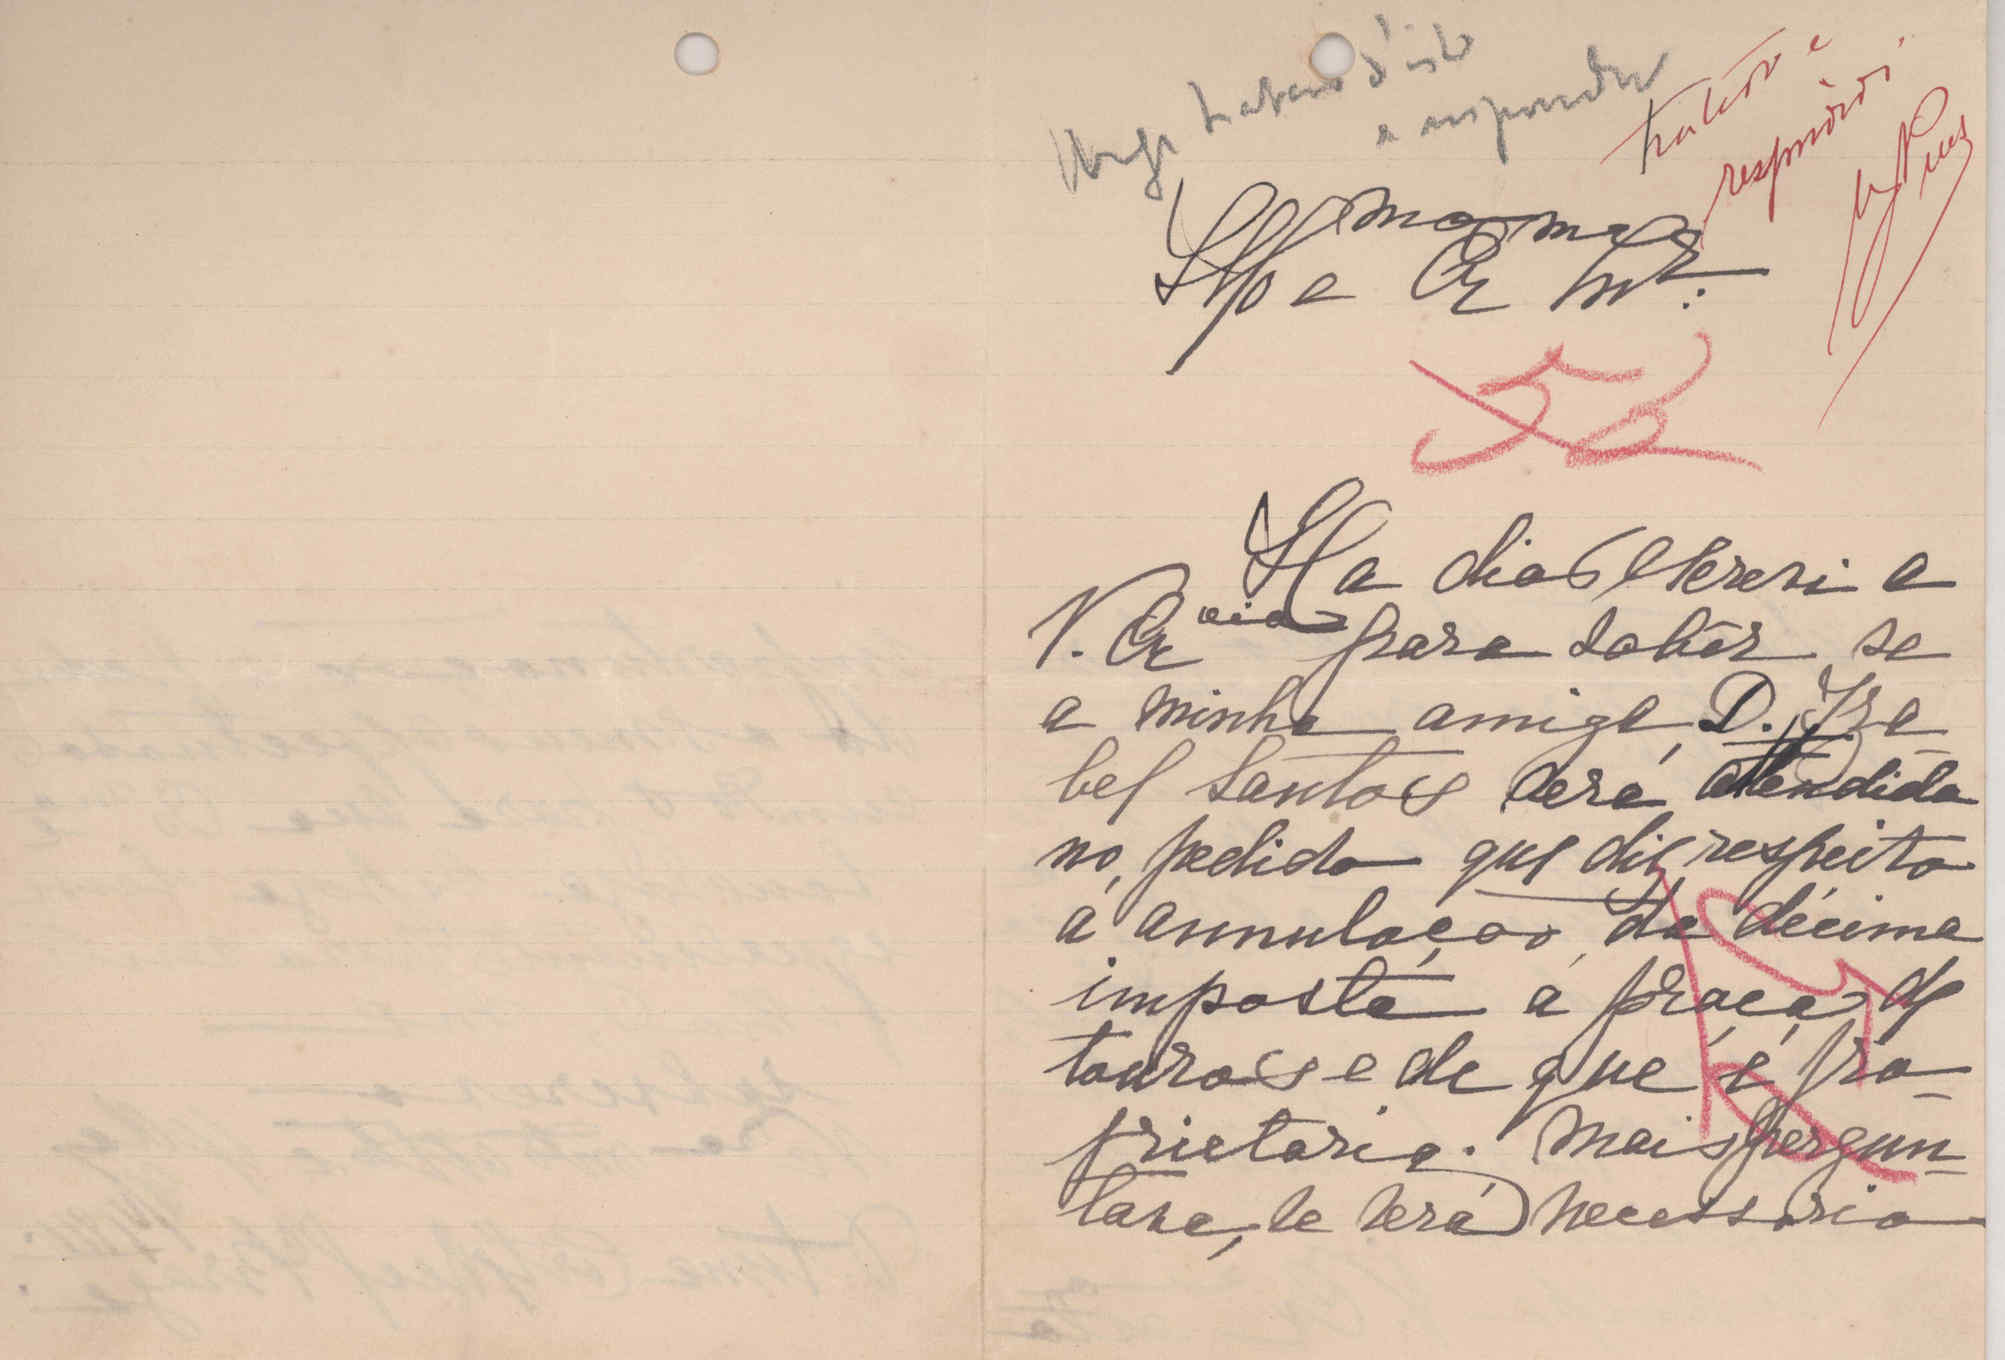 Urge tratar d'isto
e responder
tratar e
responder
Illmo e Exmo Snr:
Ha dias escrevi a
V. Excia para saber se
a minha amiga D. Iza
bel Santos será atendida
no pedido que diz respeito
á annulação da décima
imposta á praça de
touros e de que é pro-
prietaria. Mais pergun-
tava, se será necessario